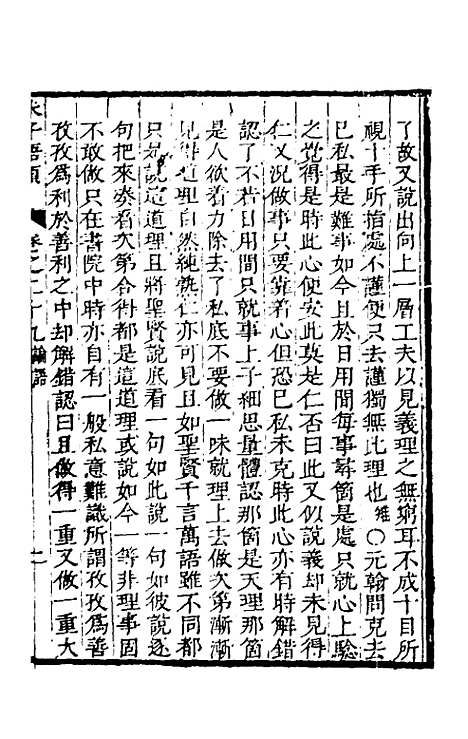 了故又說出向上一層工夫以見義理之無窮耳不成十目所
視十手所指處不謹便只去謹獨無此理也雉〇元翰問克去
已私最是難事如今且於日用間每事尋箇是處只就心上驗
之覺得是時此心便安此莫是仁否曰此又似說義却未見得
仁又況做事只要靠着心但恐已私未克時此心亦有時解錯
認了不若日用間只就事上子細思量體認那箇是天理那箇
是人欲着力除去了私底不要做一味就理上去做次第漸漸
見得道理自然純熟仁亦可見且如聖賢千言萬語雖不同都
只如說這道理且將聖賢說底看一句如此說一句如彼說逐
句把來湊看次第合得都是這道理或說如今一等非理事固
不敢做只在書院中時亦自有一般私意難識所謂孜孜爲善
孜孜爲利於善利之中却解錯認曰且做得一重又做一重大
朱子語類 卷之二十九 論語 二